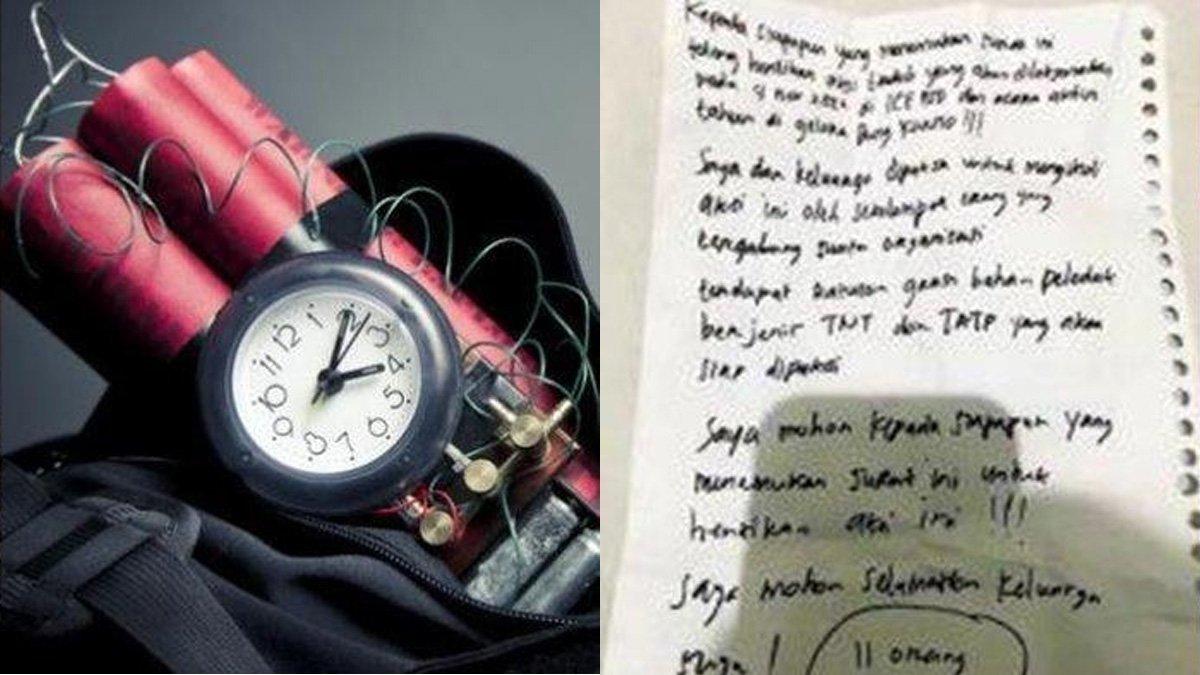 12
1
2
3
4
5
6
7
8
9
10
11
Kepada siapapun yang menemukan ini
tolong hentikan aksi yang akan
pada di ICE BSD dan acara
tahun di gelora Bung Karno !!!
Saya dan keluarga dipaksa untuk mengikuti
aksi ini oleh sekelompok orang yang
tergabung suatu organisasi
terdapat ratusan gram bahan peledak
berjenis TNT dan TATP yang akan
siap dipakai
Saya mohon kepada siapapun yang
menemukan surat ini untuk
hentikan aksi ini !!!
Saya mohon selamatkan keluarga
saya ! 11 orang